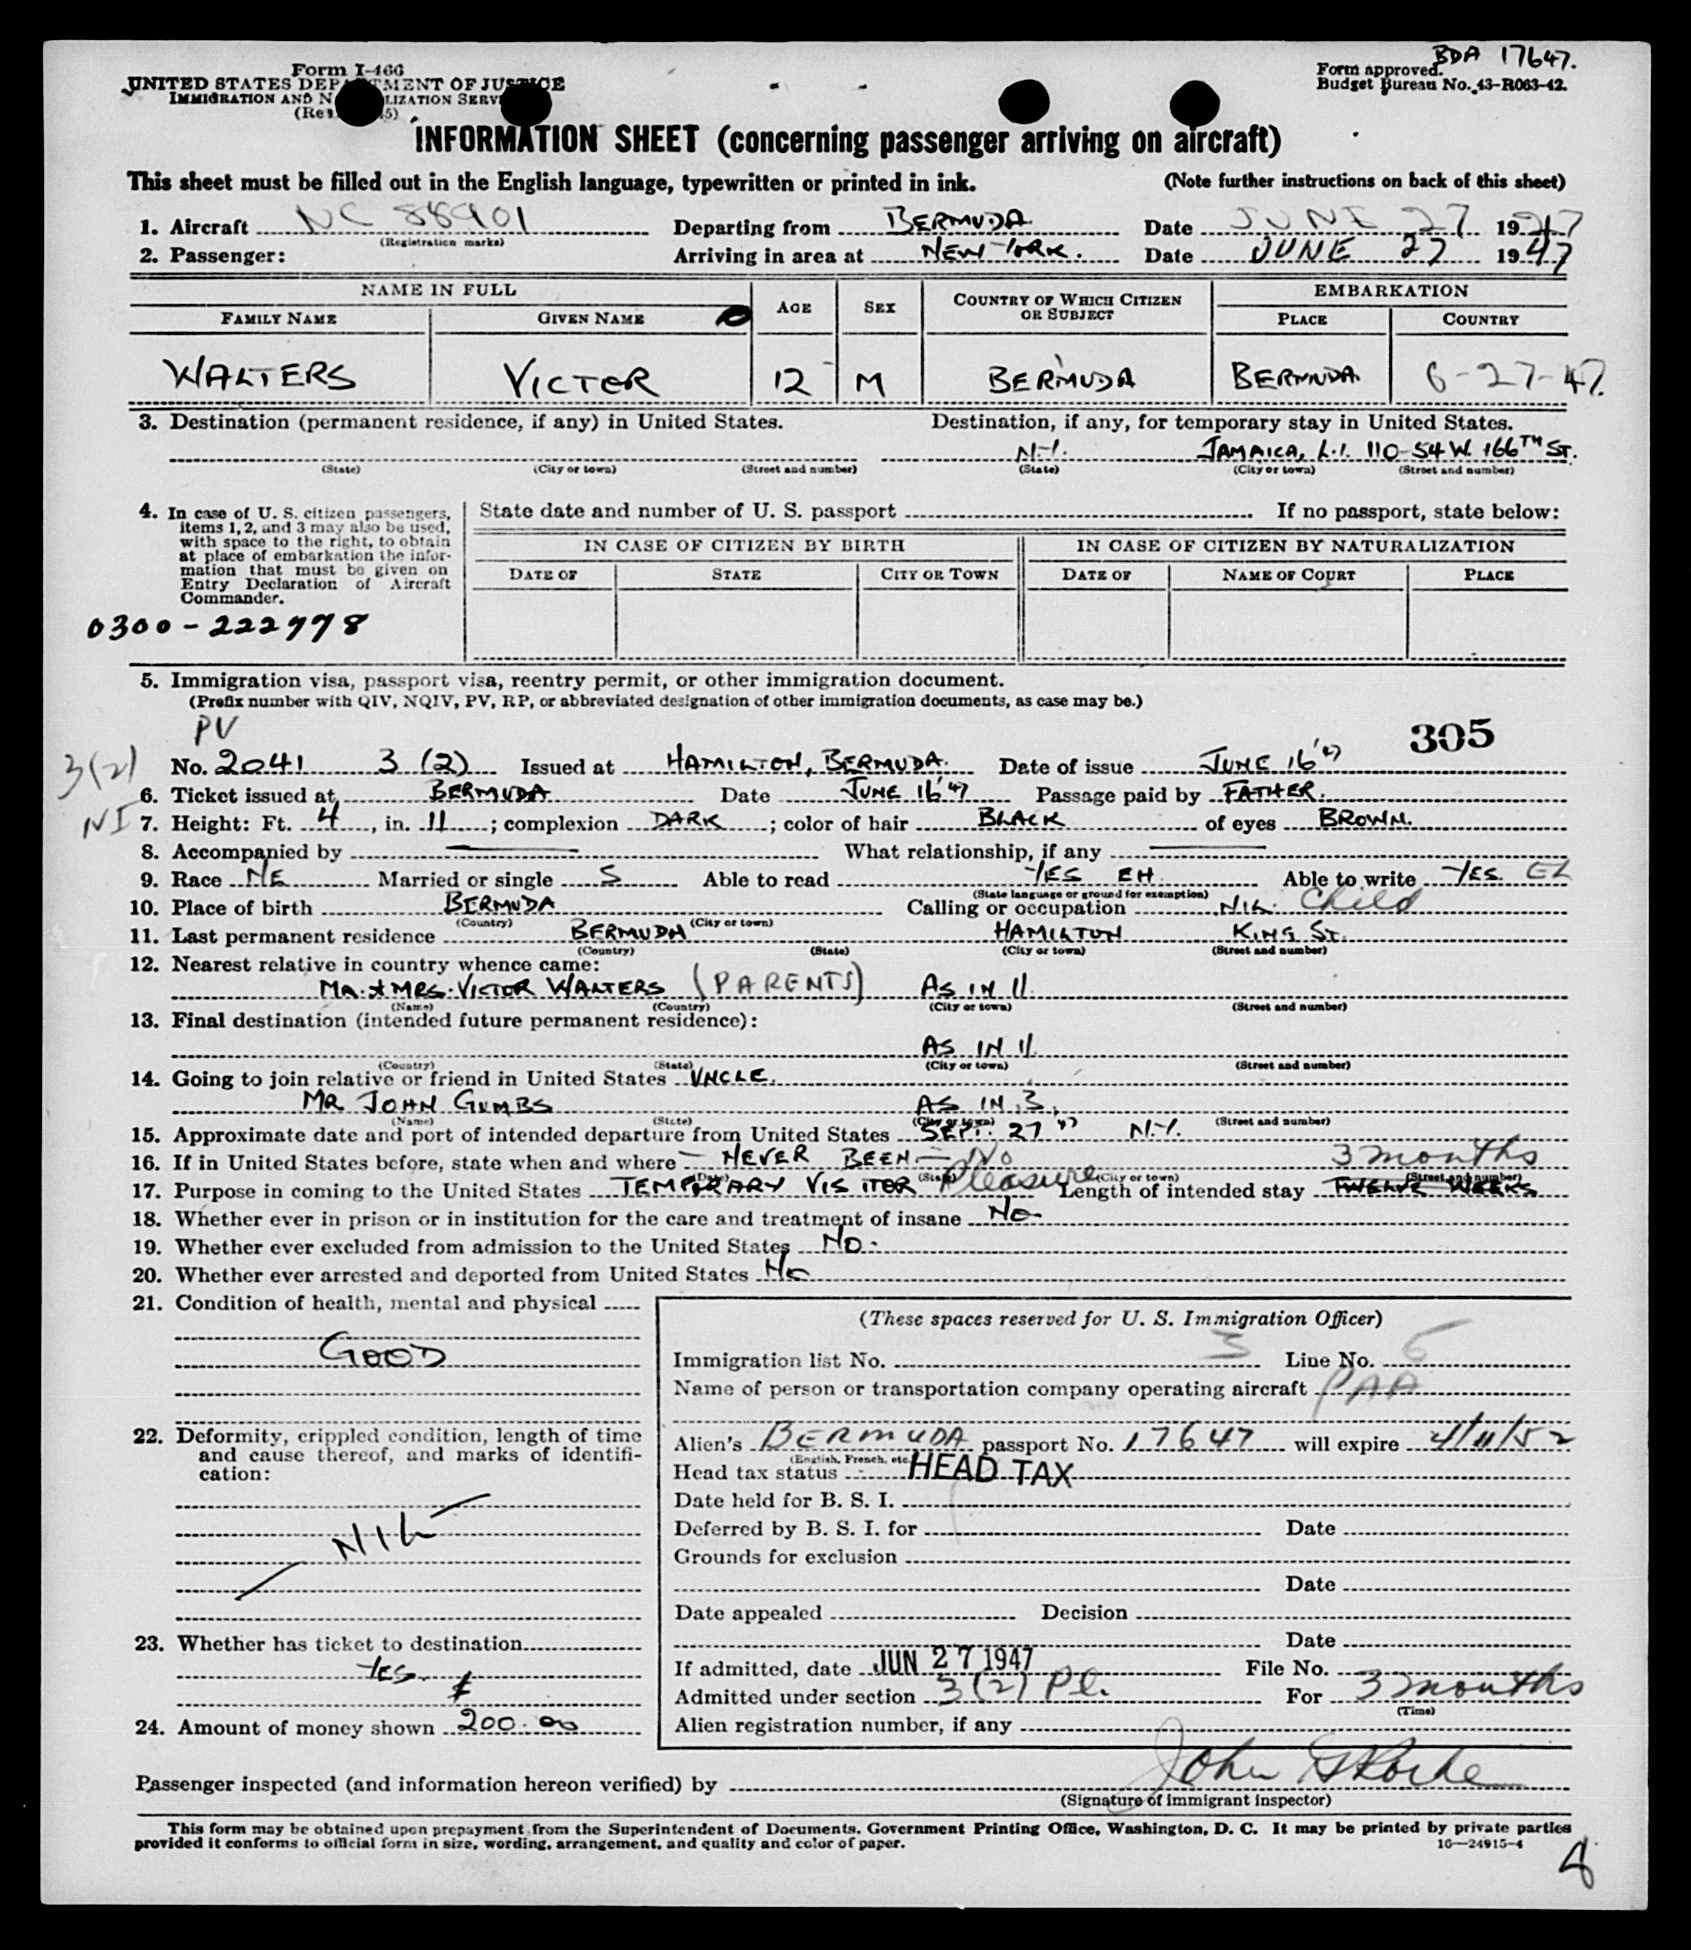 BDA 17647.
Form I-466
UNITED STATES DEPARTMENT OF JUSTICE
IMMIGRATION AND NATURALIZATION SERVICE
Form approved.
Budget Bureau No. 43-R063-42.
INFORMATION SHEET (concerning passenger arriving on aircraft)
This sheet must be filled out in the English language, typewritten or printed in ink. (Note further instructions on back of this sheet)
1. Aircraft NC 88901 Departing from BERMUDA Date JUNE 27 1947
(Registration marks)
2. Passenger: Arriving in area at NEW YORK. Date JUNE 27 1947
NAME IN FULL AGE SEX COUNTRY OF WHICH CITIZEN OR SUBJECT EMBARKATION
FAMILY NAME GIVEN NAME PLACE COUNTRY
WALTERS VICTOR 12 M BERMUDA BERMUDA 6-27-47.
3. Destination (permanent residence, if any) in United States. Destination, if any, for temporary stay in United States.
N.Y. JAMAICA, L.I. 110-54 W. 166TH ST.
(State) (City or town) (Street and number) (State) (City or town) (Street and number)
4. In case of U. S. citizen passengers, items 1, 2, and 3 may also be used, with space to the right, to obtain at place of embarkation the information that must be given on Entry Declaration of Aircraft Commander.
State date and number of U. S. passport If no passport, state below:
IN CASE OF CITIZEN BY BIRTH IN CASE OF CITIZEN BY NATURALIZATION
DATE OF STATE CITY OR TOWN DATE OF NAME OF COURT PLACE
0300-222778
5. Immigration visa, passport visa, reentry permit, or other immigration document.
(Prefix number with QIV, NQIV, PV, RP, or abbreviated designation of other immigration documents, as case may be.)
PV
305
3(2) No. 2041 3 (2) Issued at HAMILTON, BERMUDA. Date of issue JUNE 16 '47
6. Ticket issued at BERMUDA Date JUNE 16 '47 Passage paid by FATHER.
NI 7. Height: Ft. 4, in. 11; complexion DARK; color of hair BLACK of eyes BROWN.
8. Accompanied by What relationship, if any
9. Race NE Married or single S Able to read YES EH Able to write YES
(State language or ground for exemption)
10. Place of birth BERMUDA Calling or occupation NIL. Child
(Country) (City or town)
11. Last permanent residence BERMUDA HAMILTON KING ST.
(Country) (State) (City or town) (Street and number)
12. Nearest relative in country whence came:
MR. & MRS. VICTOR WALTERS (PARENTS) AS IN 11.
(Name) (Country) (City or town) (Street and number)
13. Final destination (intended future permanent residence):
AS IN 11.
(Country) (State) (City or town) (Street and number)
14. Going to join relative or friend in United States UNCLE.
MR JOHN GUMBS AS IN 3.
(Name) (State) (City or town) (Street and number)
15. Approximate date and port of intended departure from United States SEPT. 27 '47 N.Y.
16. If in United States before, state when and where - NEVER BEEN - No 3 months
(Date) (State) (City or town) (Street and number)
17. Purpose in coming to the United States TEMPORARY VISITOR Pleasure Length of intended stay TWELVE WEEKS
18. Whether ever in prison or in institution for the care and treatment of insane No
19. Whether ever excluded from admission to the United States No.
20. Whether ever arrested and deported from United States No
21. Condition of health, mental and physical
GOOD
22. Deformity, crippled condition, length of time and cause thereof, and marks of identification:
NIL
23. Whether has ticket to destination
YES.
24. Amount of money shown $ 200.00
(These spaces reserved for U. S. Immigration Officer)
Immigration list No. 3 Line No. 5
Name of person or transportation company operating aircraft PAA
Alien's BERMUDA passport No. 17647 will expire 4/11/52
(English, French, etc.)
Head tax status HEAD TAX
Date held for B. S. I.
Deferred by B. S. I. for Date
Grounds for exclusion
Date
Date appealed Decision
Date
If admitted, date JUN 27 1947 File No.
Admitted under section 3(2) Pl. For 3 months
(Time)
Alien registration number, if any
Passenger inspected (and information hereon verified) by
(Signature of immigrant inspector)
This form may be obtained upon prepayment from the Superintendent of Documents, Government Printing Office, Washington, D. C. It may be printed by private parties
provided it conforms to official form in size, wording, arrangement, and quality and color of paper.
16—24915-4